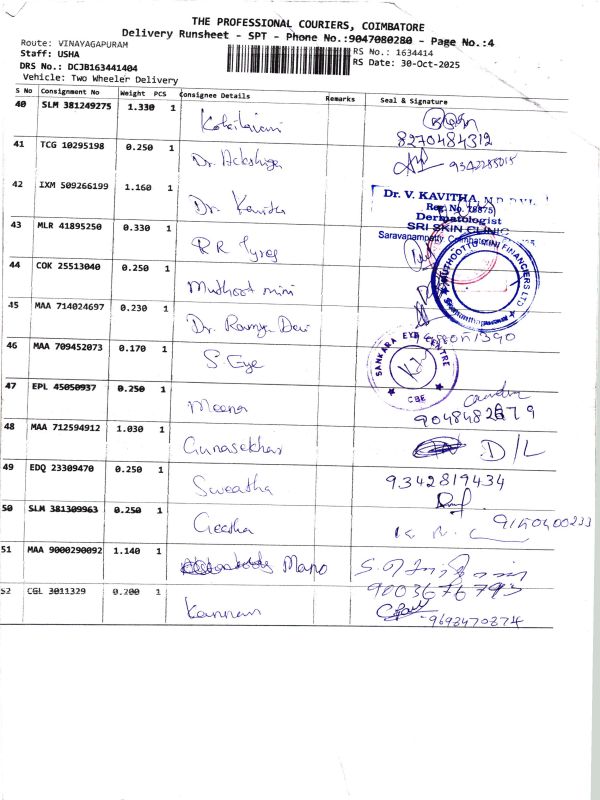 THE PROFESSIONAL COURIERS, COIMBATORE
Delivery Runsheet - SPT - Phone No.:9047080280 - Page No.:4
Route: VINAYAGAPURAM
Staff: USHA
RS No.: 1634414
DRS No.: DCJB163441404
RS Date: 30-Oct-2025
Vehicle: Two Wheeler Delivery
S No Consignment No Weight PCS Consignee Details Remarks Seal & Signature
40 SLM 381249275 1.330 1
8270484312
41 TCG 10295198 0.250 1 Dr. Akshaya
42 IXM 509266199 1.160 1 Dr. Kavitha
Dr. V. KAVITHA,
Reg. No.
Dermatologist
SRI SKIN CLINIC
Saravanampatty, Coimbatore
43 MLR 41895250 0.330 1 RR Tyres
44 COK 25513040 0.250 1 Muthoot mini
MUTHOOTTU MINI FINANCIERS LTD
45 MAA 714024697 0.230 1 Dr. Ramya Devi
46 MAA 709452073 0.170 1 S Eye
SANKARA EYE CENTRE
CBE
47 EPL 45050937 0.250 1 Meena
48 MAA 712594912 1.030 1 Gunasekhar D/L
49 EDQ 23309470 0.250 1 Sweatha 9342819434
50 SLM 381309963 0.250 1 Geetha
51 MAA 9000290092 1.140 1 Mano
9003676793
52 CGL 3011329 0.200 1 Kannan